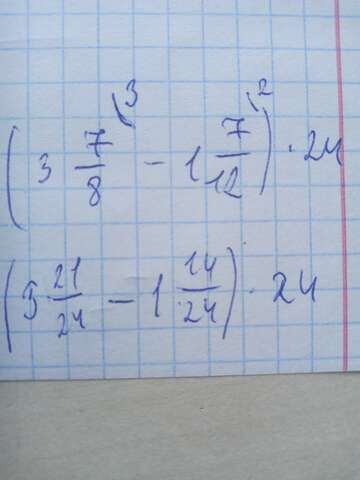 (3 7/8 \3 − 1 7/12 \2) · 24
(3 21/24 − 1 14/24) · 24